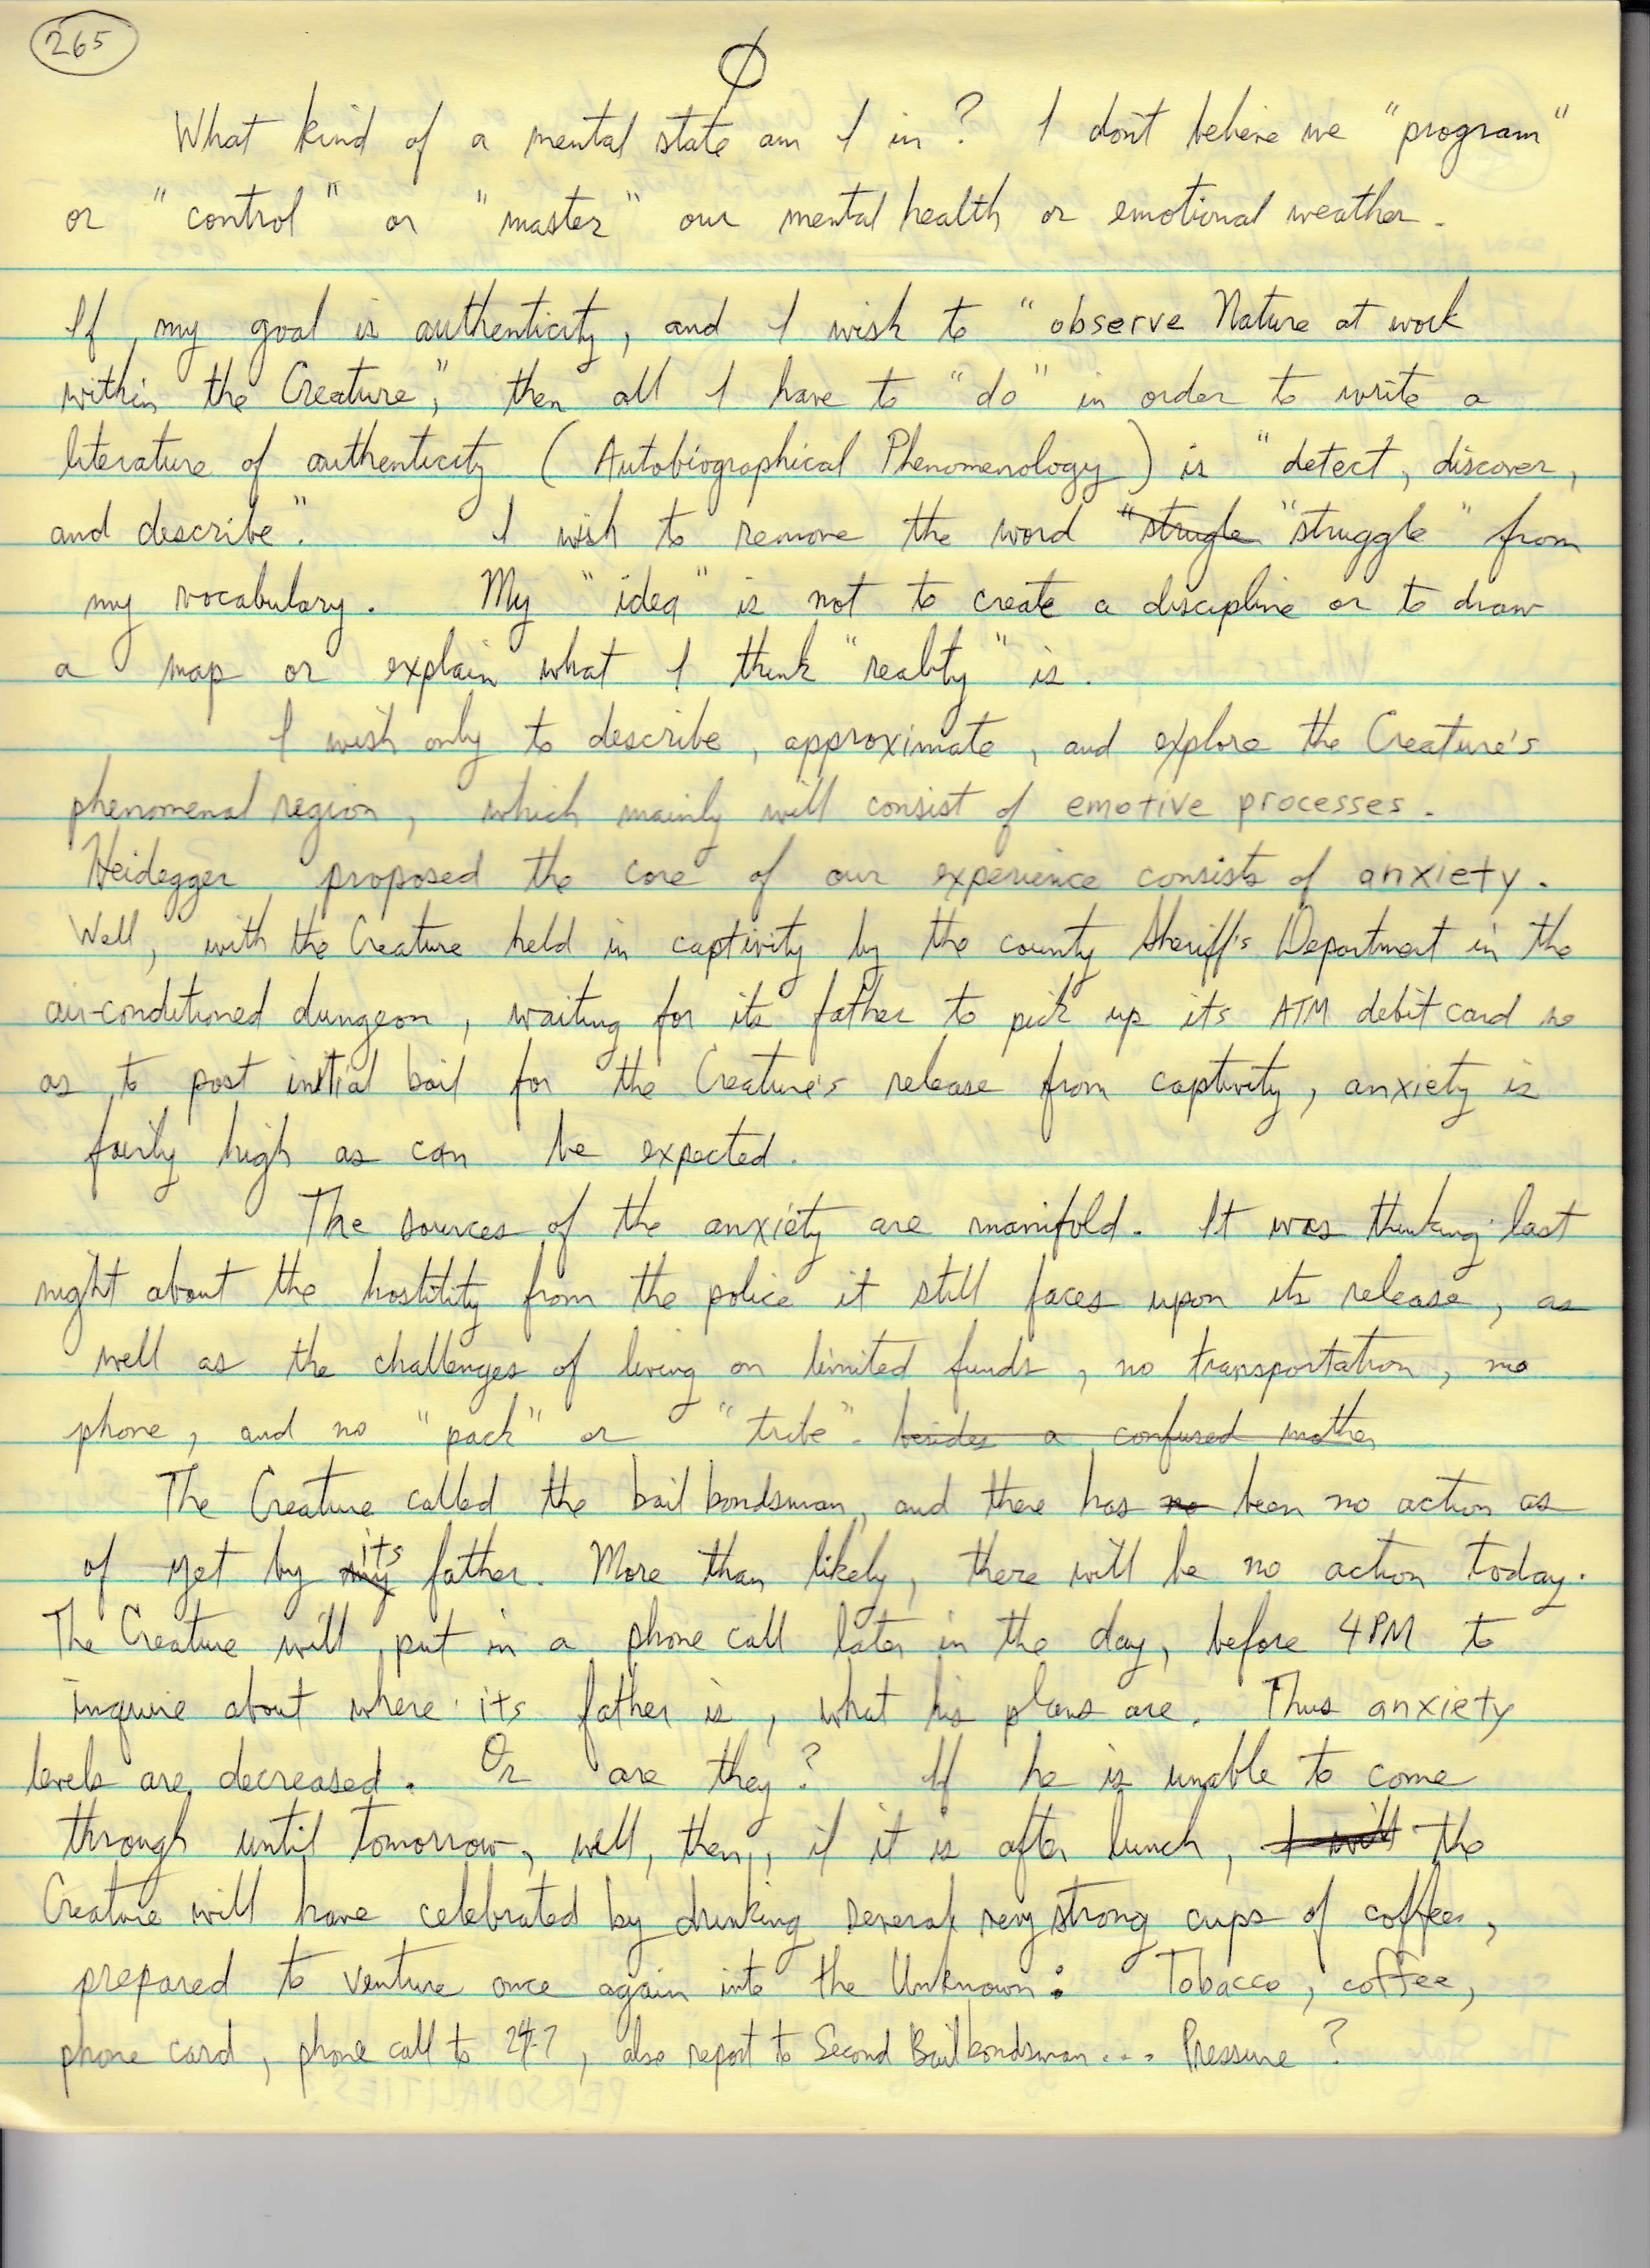 265
Ø
What kind of a mental state am I in? I don't believe we "program"
or "control" or "master" our mental health or emotional weather.
If my goal is authenticity, and I wish to "observe Nature at work
within the Creature," then all I have to "do" in order to write a
literature of authenticity (Autobiographical Phenomenology) is "detect, discover,
and describe". I wish to remove the word "strugle "struggle" from
my vocabulary. My "idea" is not to create a discipline or to draw
a map or explain what I think "reality" is.
I wish only to describe, approximate, and explore the Creature's
phenomenal region, which mainly will consist of emotive processes.
Heidegger proposed the core of our experience consists of anxiety.
Well, with the Creature held in captivity by the county Sheriff's Department in the
air-conditioned dungeon, waiting for its father to pick up its ATM debit card so
as to post initial bail for the Creature's release from captivity, anxiety is
fairly high as can be expected.
The sources of the anxiety are manifold. It was thinking last
night about the hostility from the police it still faces upon its release, as
well as the challenges of living on limited funds, no transportation, no
phone, and no "pack" or "tribe". besides a confused mother
The Creature called the bail bondsman, and there has no been no action as
of yet by my its father. More than likely, there will be no action today.
The Creature will put in a phone call later in the day, before 4 PM to
inquire about where its father is, what his plans are. Thus anxiety
levels are decreased. Or are they? If he is unable to come
through until tomorrow, well, then, if it is after lunch, I will the
Creature will have celebrated by drinking several very strong cups of coffee,
prepared to venture once again into the Unknown: Tobacco, coffee,
phone card, phone call to 24-7, also report to Second Bail bondsman... Pressure?